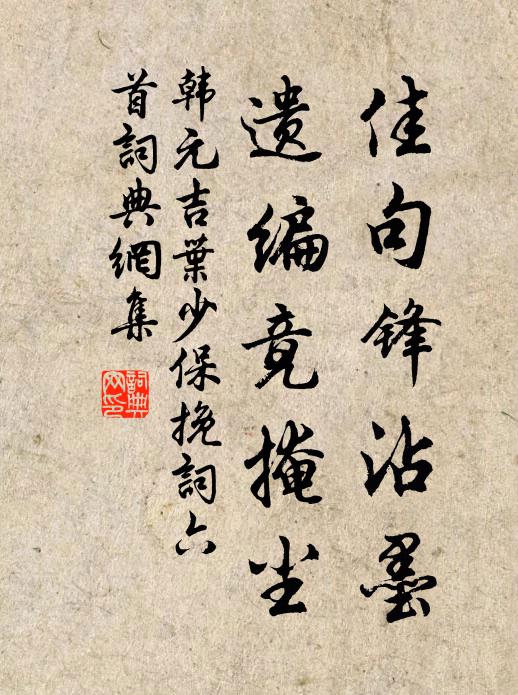 佳句锋沾墨
遗编竟掩尘
韩元吉葉少保挽詞六
首詞典網集
詞典
网印